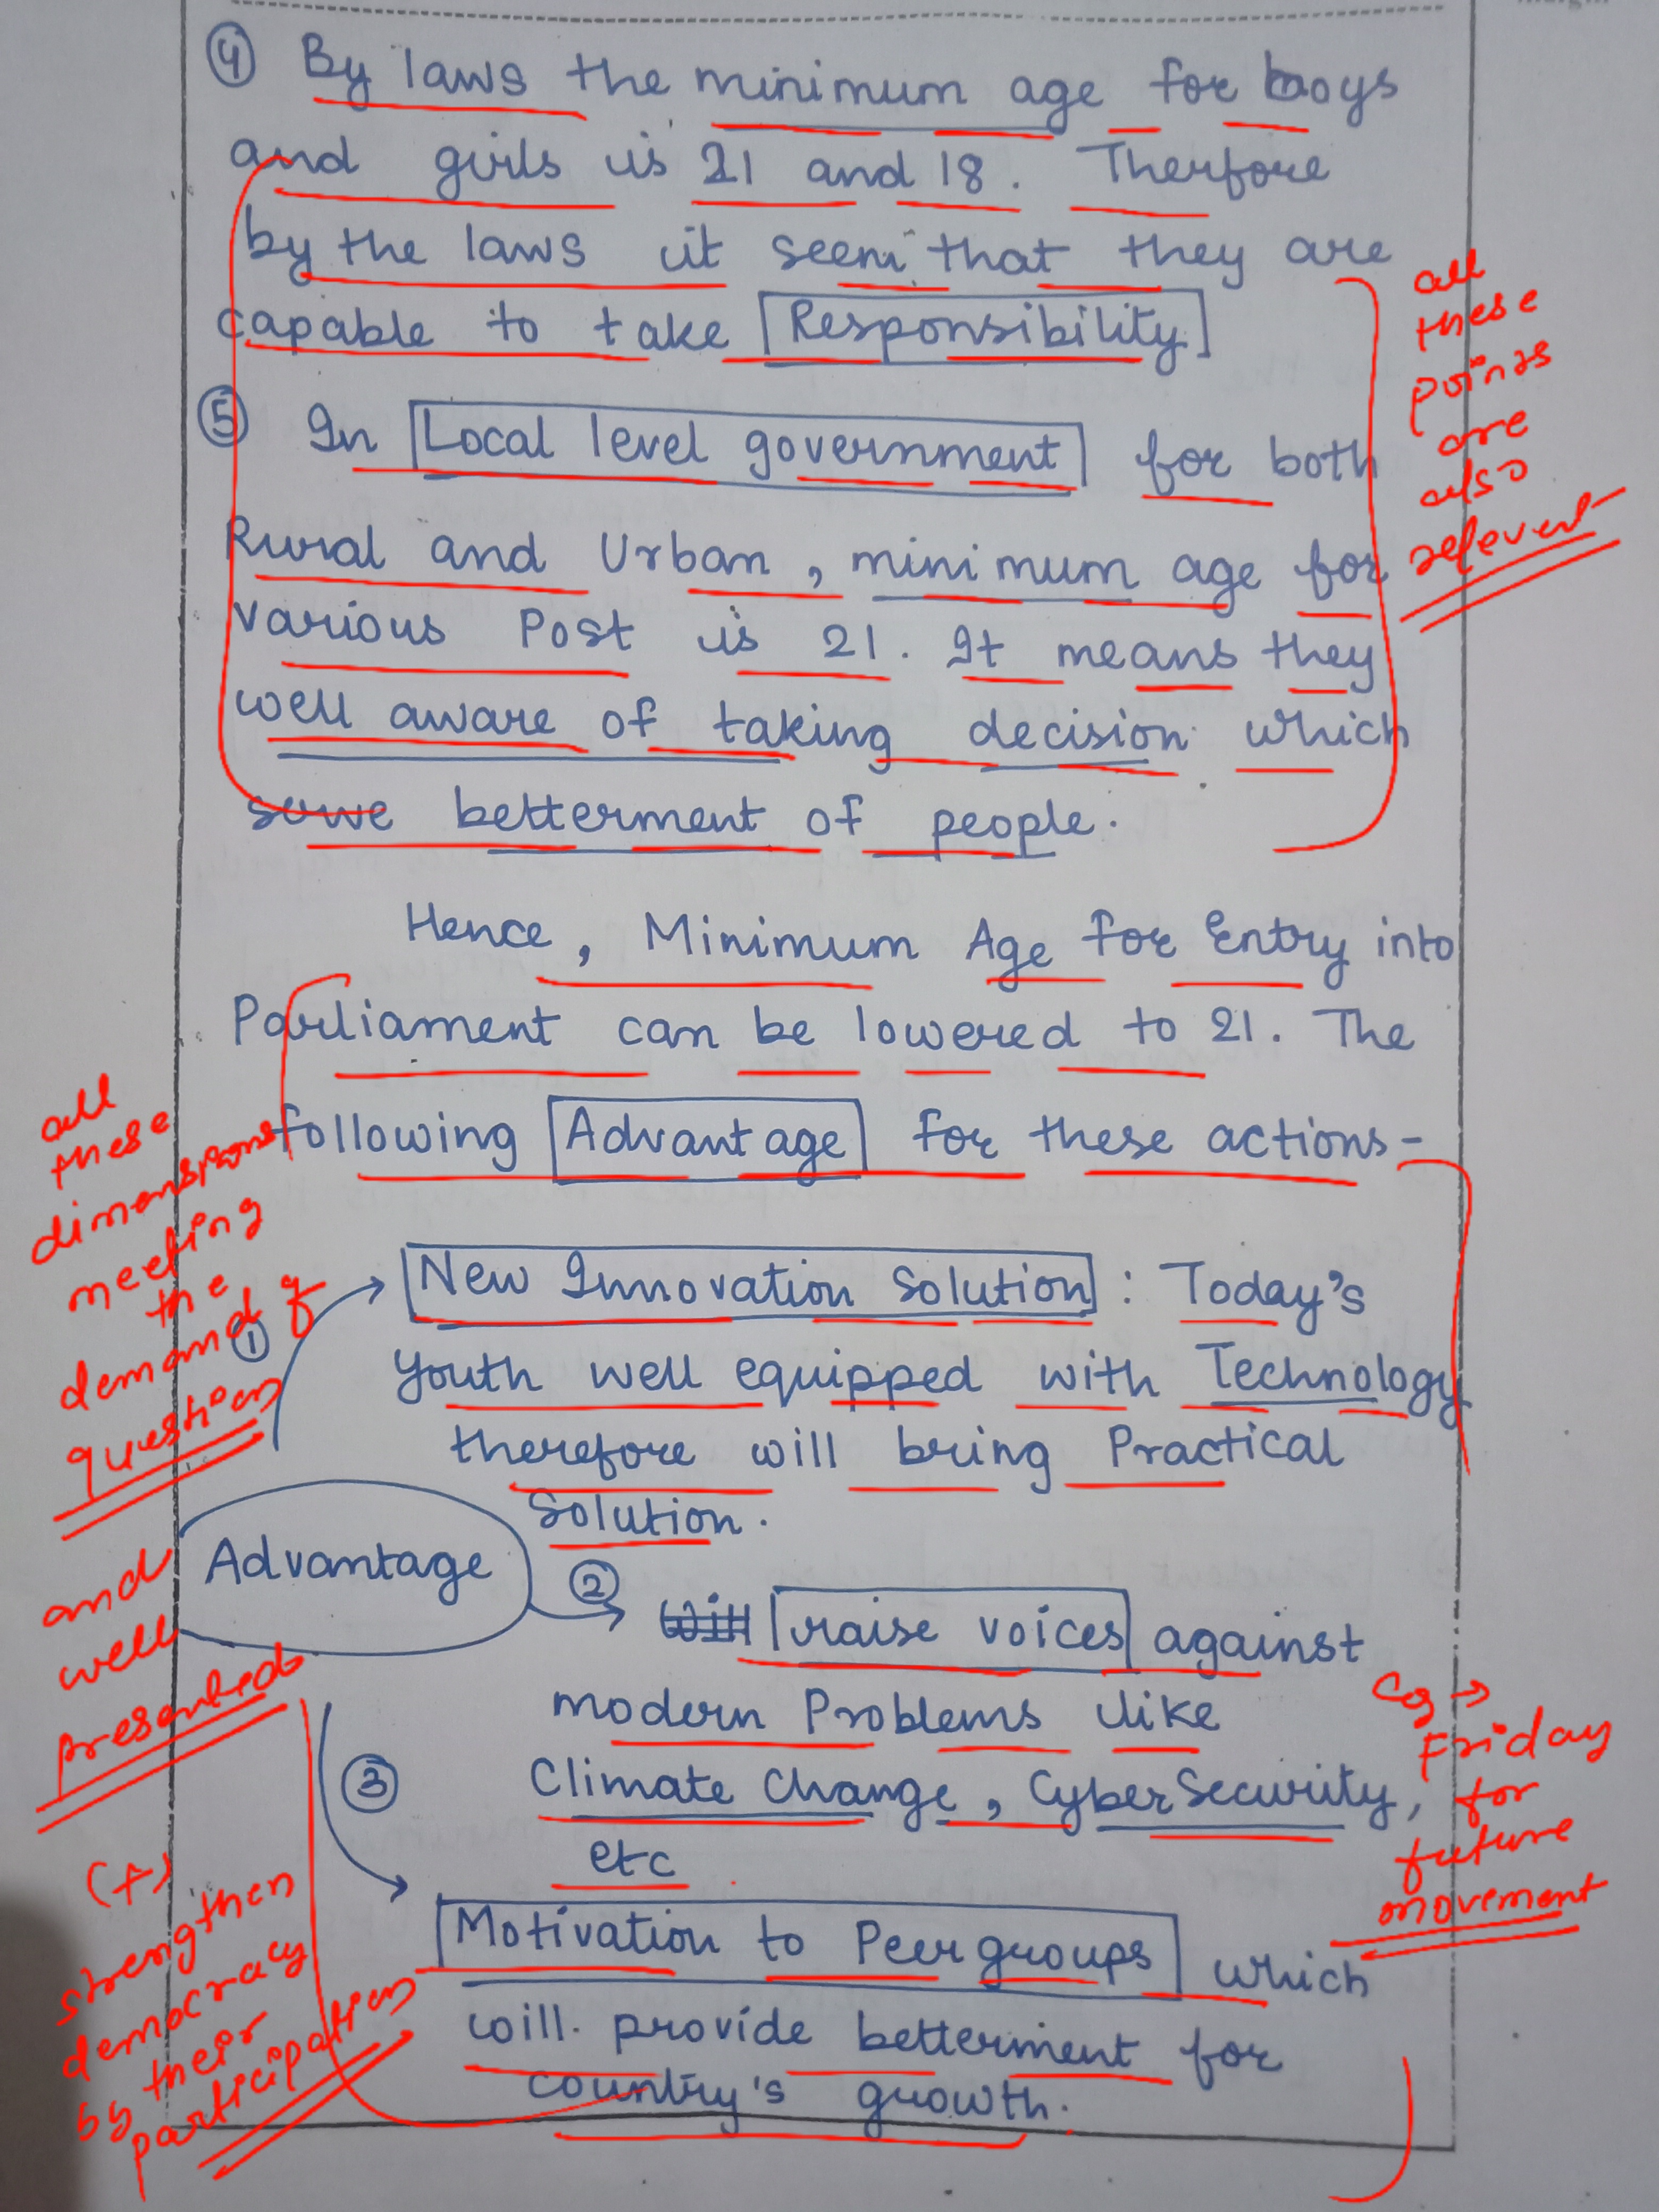 ④ By laws the minimum age for boys
and girls is 21 and 18. Therfore
by the laws it seem that they are
capable to take Responsibility
all
these
points
are
also
relevent
⑤ In Local level government for both
Rural and Urban, minimum age for
various Post is 21. It means they
well aware of taking decision which
betterment of people.
Hence, Minimum Age for Entry into
Parliament can be lowered to 21. The
following Advantage for these actions-
all
these
dimensions
meeting
the
demand of
question
and
well
presented
① New Innovation Solution : Today's
youth well equipped with Technology
therefore will bring Practical
Solution.
Advantage
② Will raise voices against
modern Problems like
Climate Change, Cyber Security,
etc
eg →
Friday
for
future
movement
③ Motivation to Peer groups which
will provide betterment for
country's growth.
(+)
strengthen
democracy
by their
participation